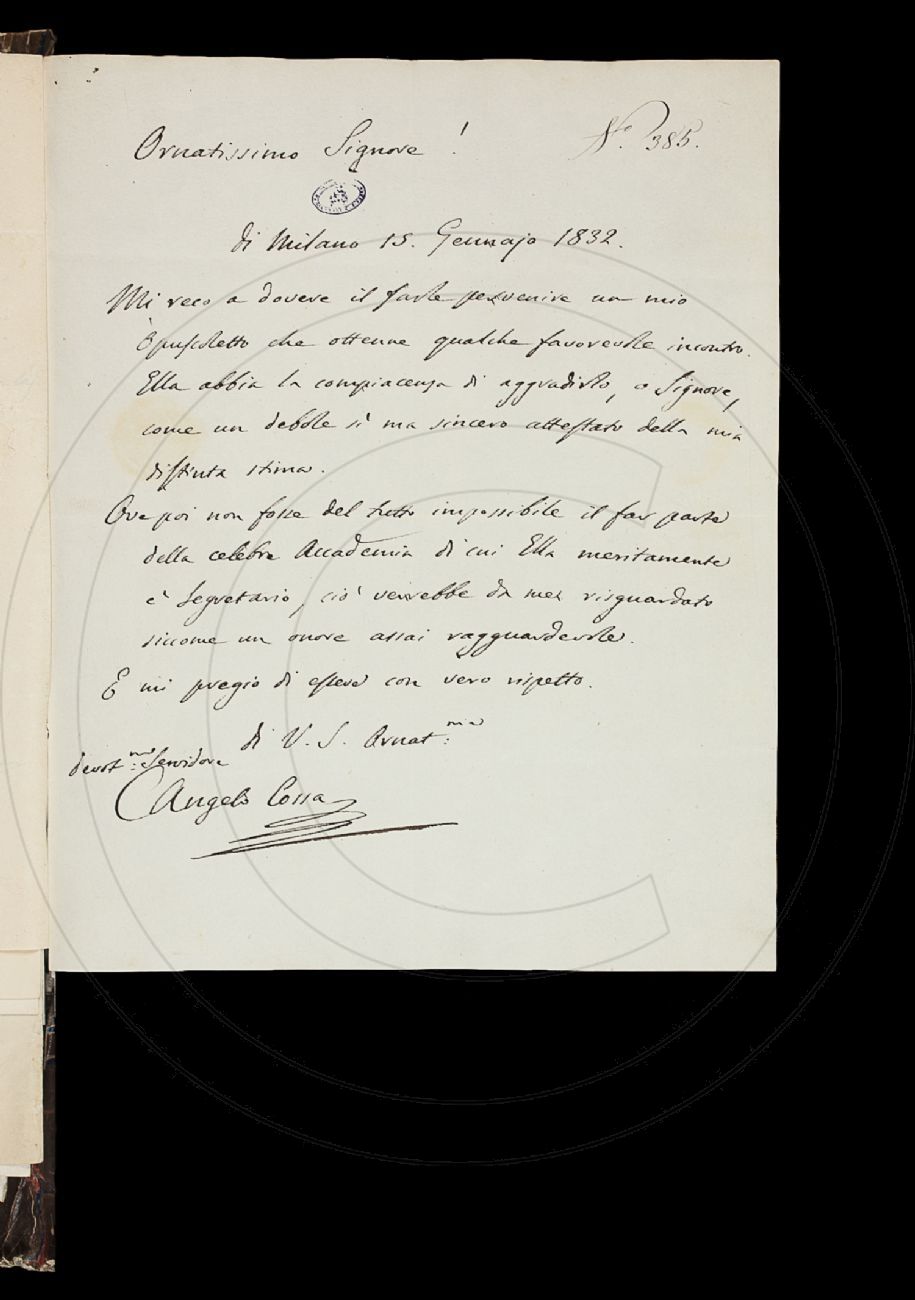 Nº. 385.
Ornatissimo Signore !
di Milano 15. Gennajo 1832.
Mi reco a dovere il farle pervenire un mio
Opuscoletto che ottenne qualche favorevole incontro.
Ella abbia la compiacenza di aggradirlo, o Signore,
come un debole sì ma sincero attestato della mia
distinta stima.
Ove poi non fosse del tutto impossibile il far parte
della celebre Accademia di cui Ella meritamente
è Segretario, ciò verrebbe da me risguardato
siccome un onore assai ragguardevole.
E mi pregio di essere con vero rispetto.
di V. S. Ornat:ma
devot:mo Servidore
Angelo Cossa